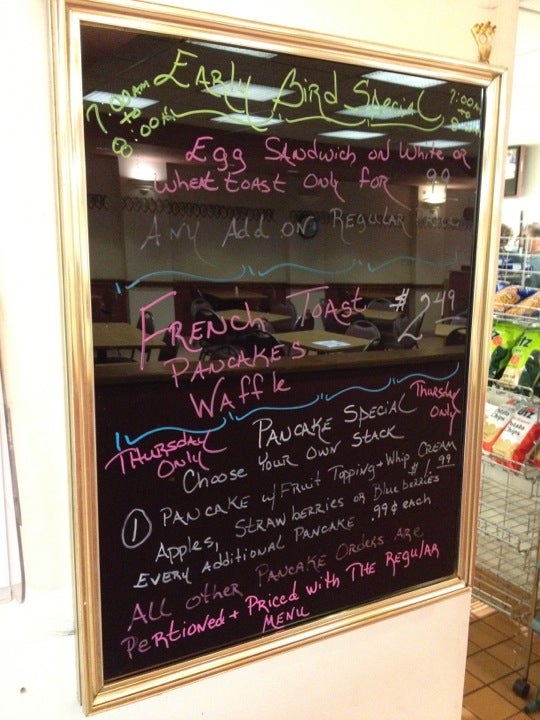 7:00AM to 8:00AM
EARLY Bird Special
7:00AM to
Egg SANdwich oN White or
Wheat toast Only for .99
ANY Add oN Regular
FRENCH TOAST $2.49
PANCAKES
WAffle
THURSDAY ONLY
PANCAKE SPECIAL
Thursday Only
Choose Your Own STACK
① PANCAKE w/ Fruit Topping + Whip CREAM
Apples, Strawberries or Blueberries $1.99
EVERY Additional PANCAKE .99¢ each
ALL other PANCAKE Orders ARE
Pertioned + Priced with THE Regular
MENU
utz